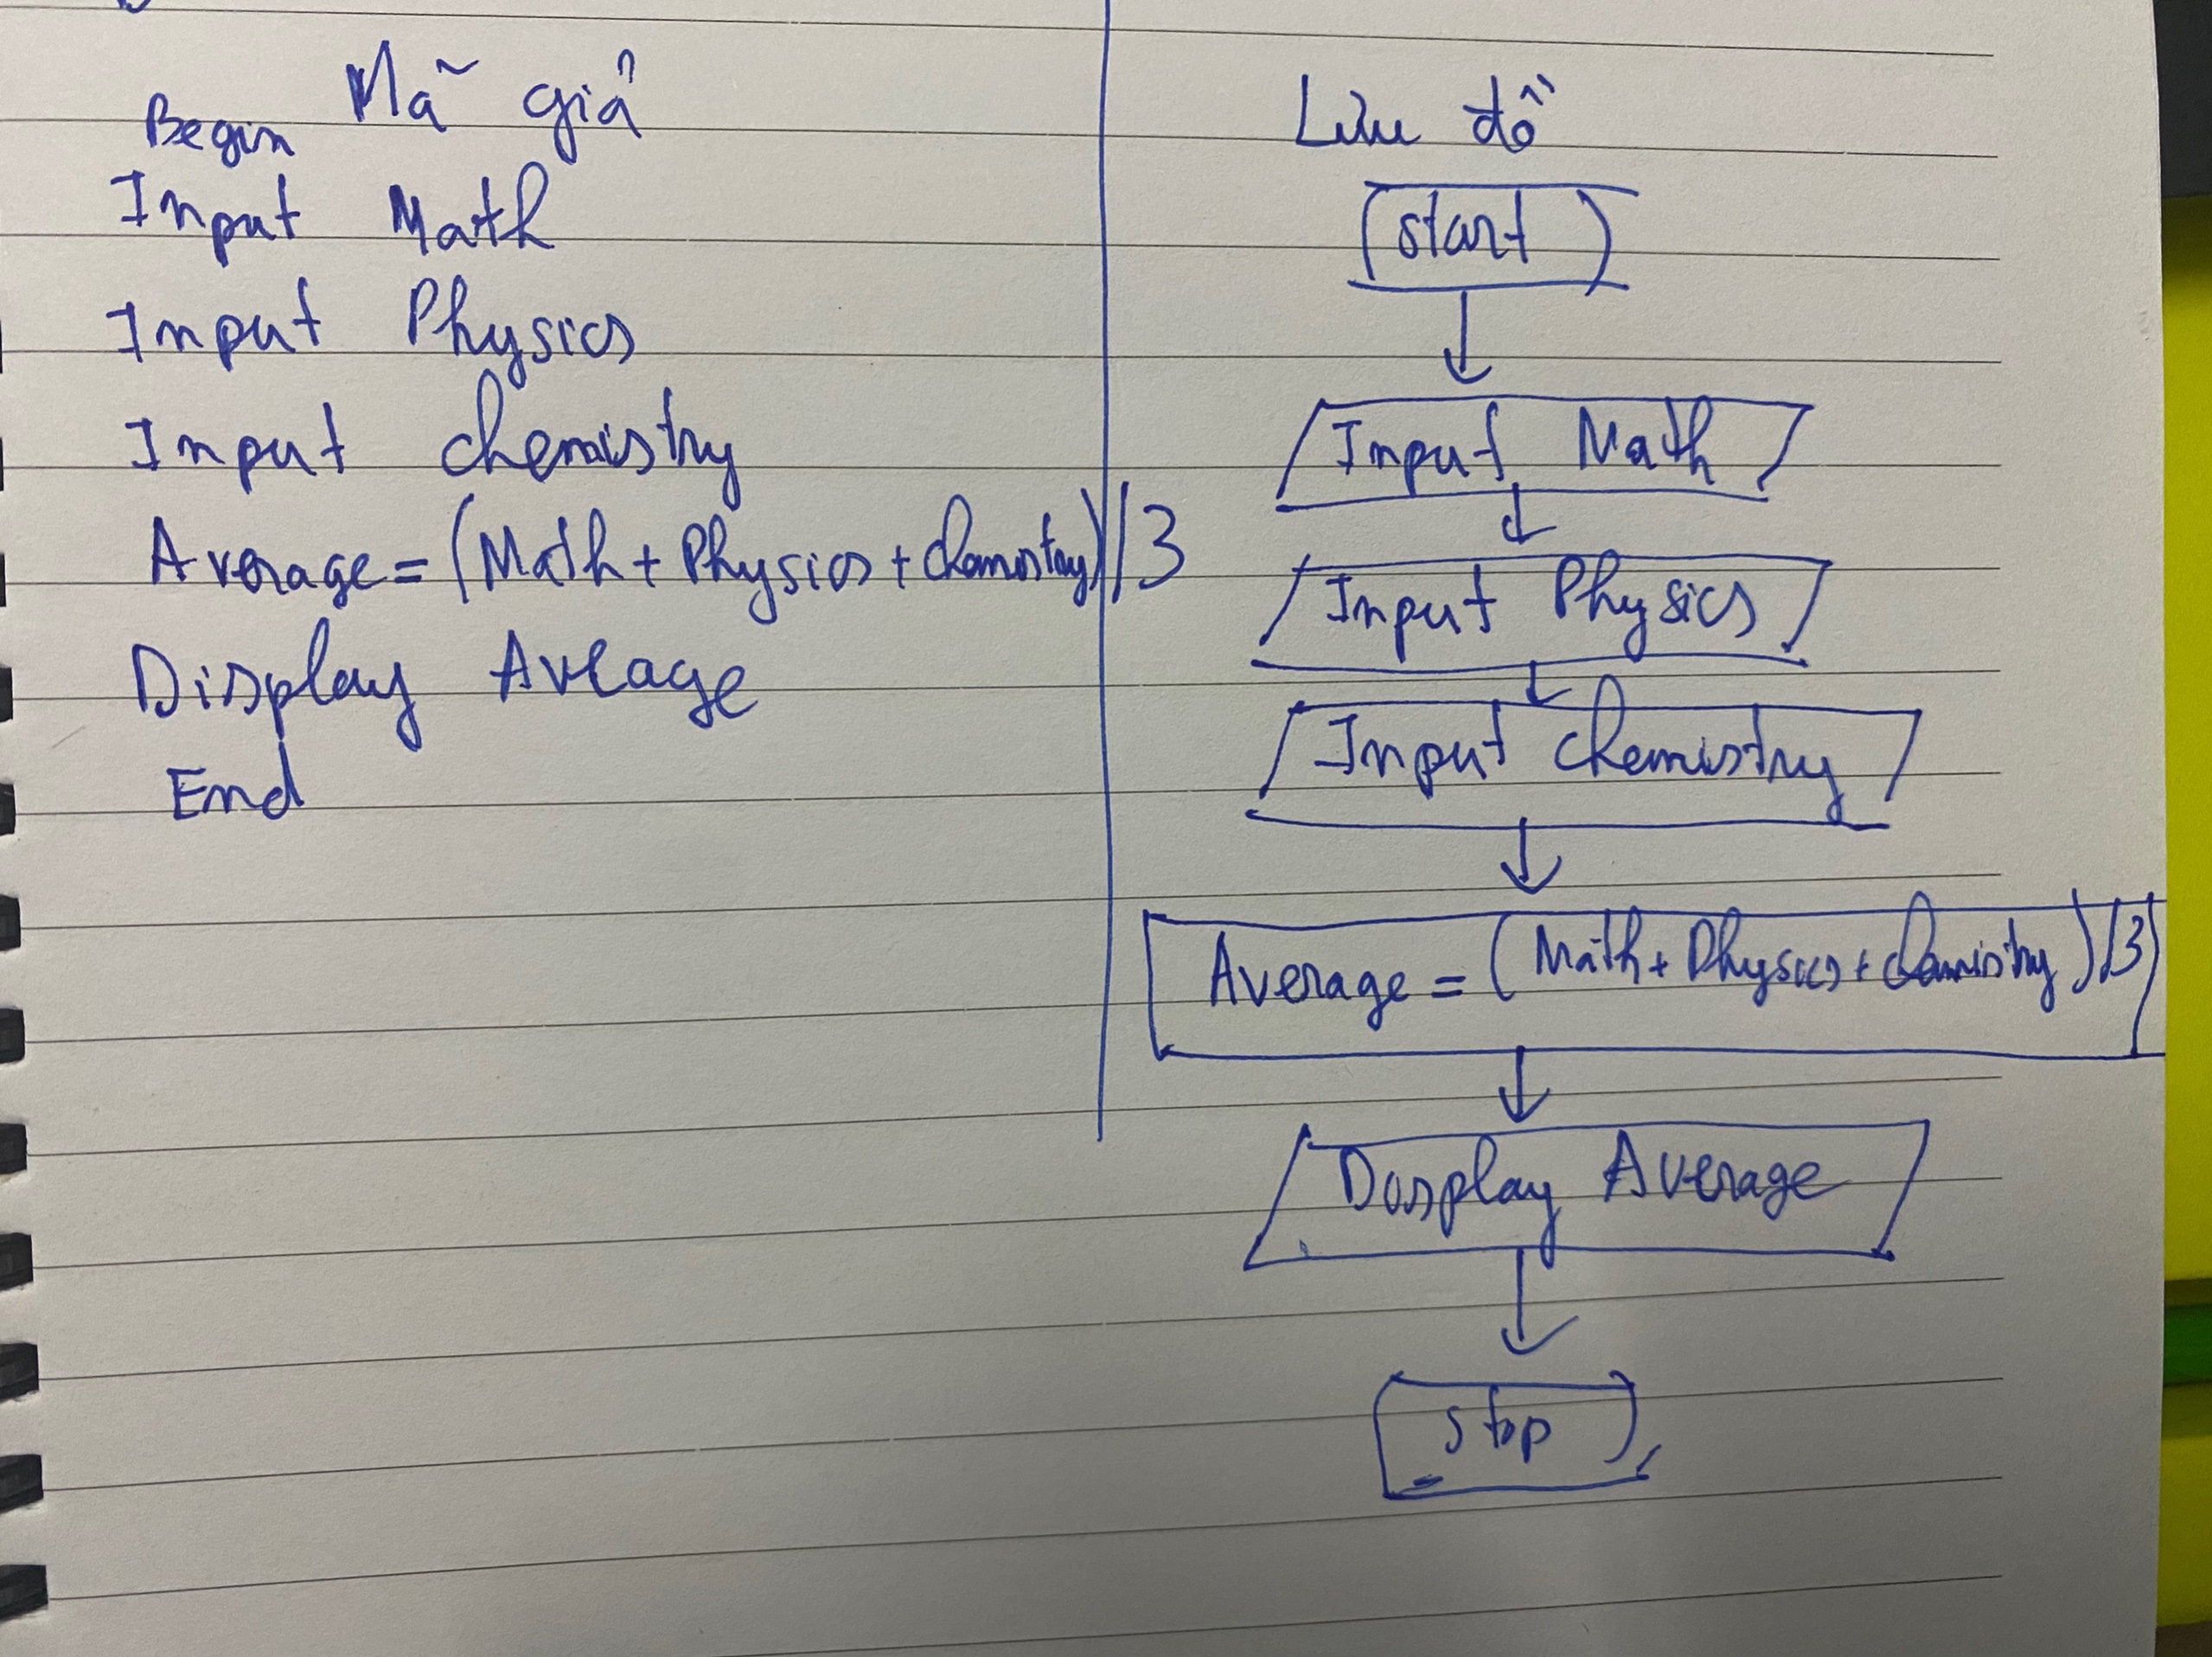 Mã giả
Begin
Input Math
Input Physics
Input chemistry
Average = (Math + Physics + chemistry)/3
Display Average
End
Lưu đồ
start
Input Math
Input Physics
Input chemistry
Average = (Math + Physics + chemistry)/3
Display Average
stop